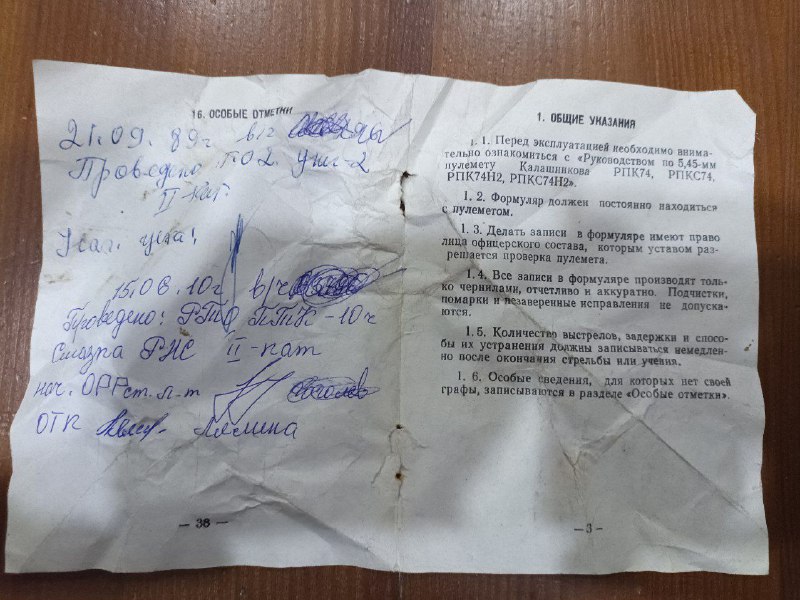 16. ОСОБЫЕ ОТМЕТКИ
21.09.89г в/ч
Проведено ТО2
II-кат.
15.06.10г в/ч
Проведено: РТО ППК-10ч
Смазка РНС II-кат
нач. ОРР ст. л-т
ОТК Лялина
— 38 —
1. ОБЩИЕ УКАЗАНИЯ
1. 1. Перед эксплуатацией необходимо внима-
тельно ознакомиться с «Руководством по 5,45-мм
пулемету Калашникова РПК74, РПКС74,
РПК74Н2, РПКС74Н2».
1. 2. Формуляр должен постоянно находиться
с пулеметом.
1. 3. Делать записи в формуляре имеют право
лица офицерского состава, которым уставом раз-
решается проверка пулемета.
1. 4. Все записи в формуляре производят толь-
ко чернилами, отчетливо и аккуратно. Подчистки,
помарки и незаверенные исправления не допуска-
ются.
1. 5. Количество выстрелов, задержки и спосо-
бы их устранения должны записываться немедлен-
но после окончания стрельбы или учения.
1. 6. Особые сведения, для которых нет своей
графы, записываются в разделе «Особые отметки».
—3—